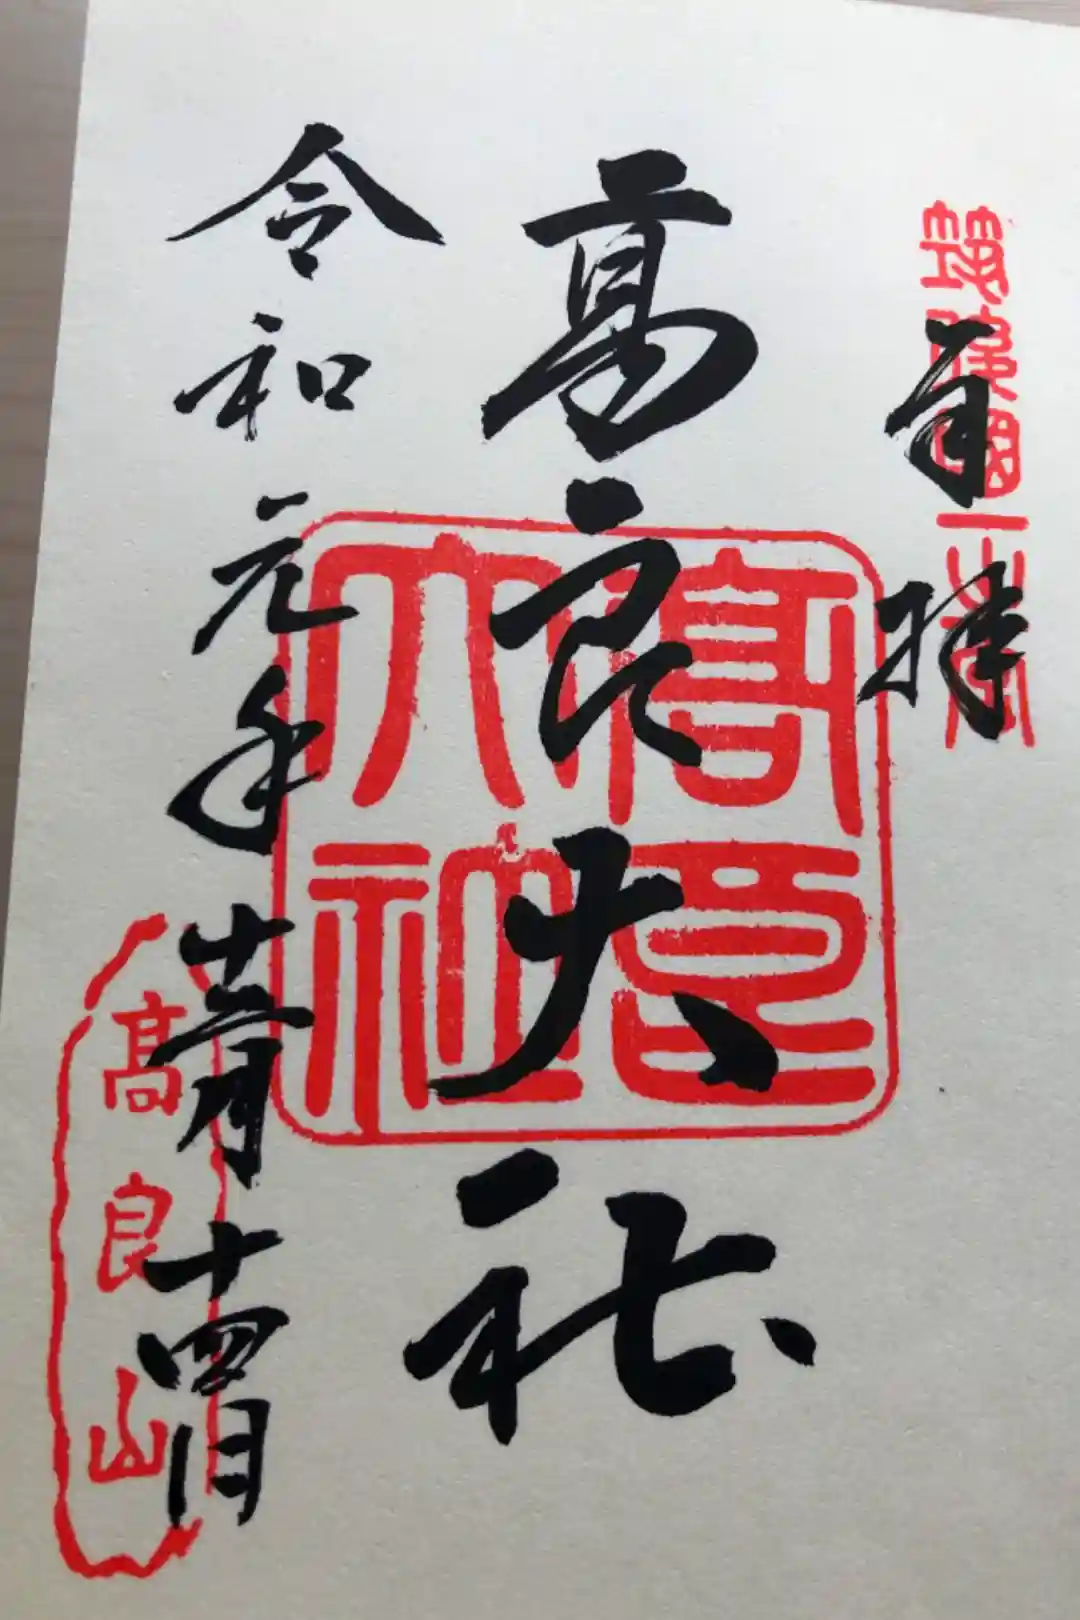 筑後國一之宮
奉拝
髙良大社
高良大社
令和元年十二月十四日
髙良山